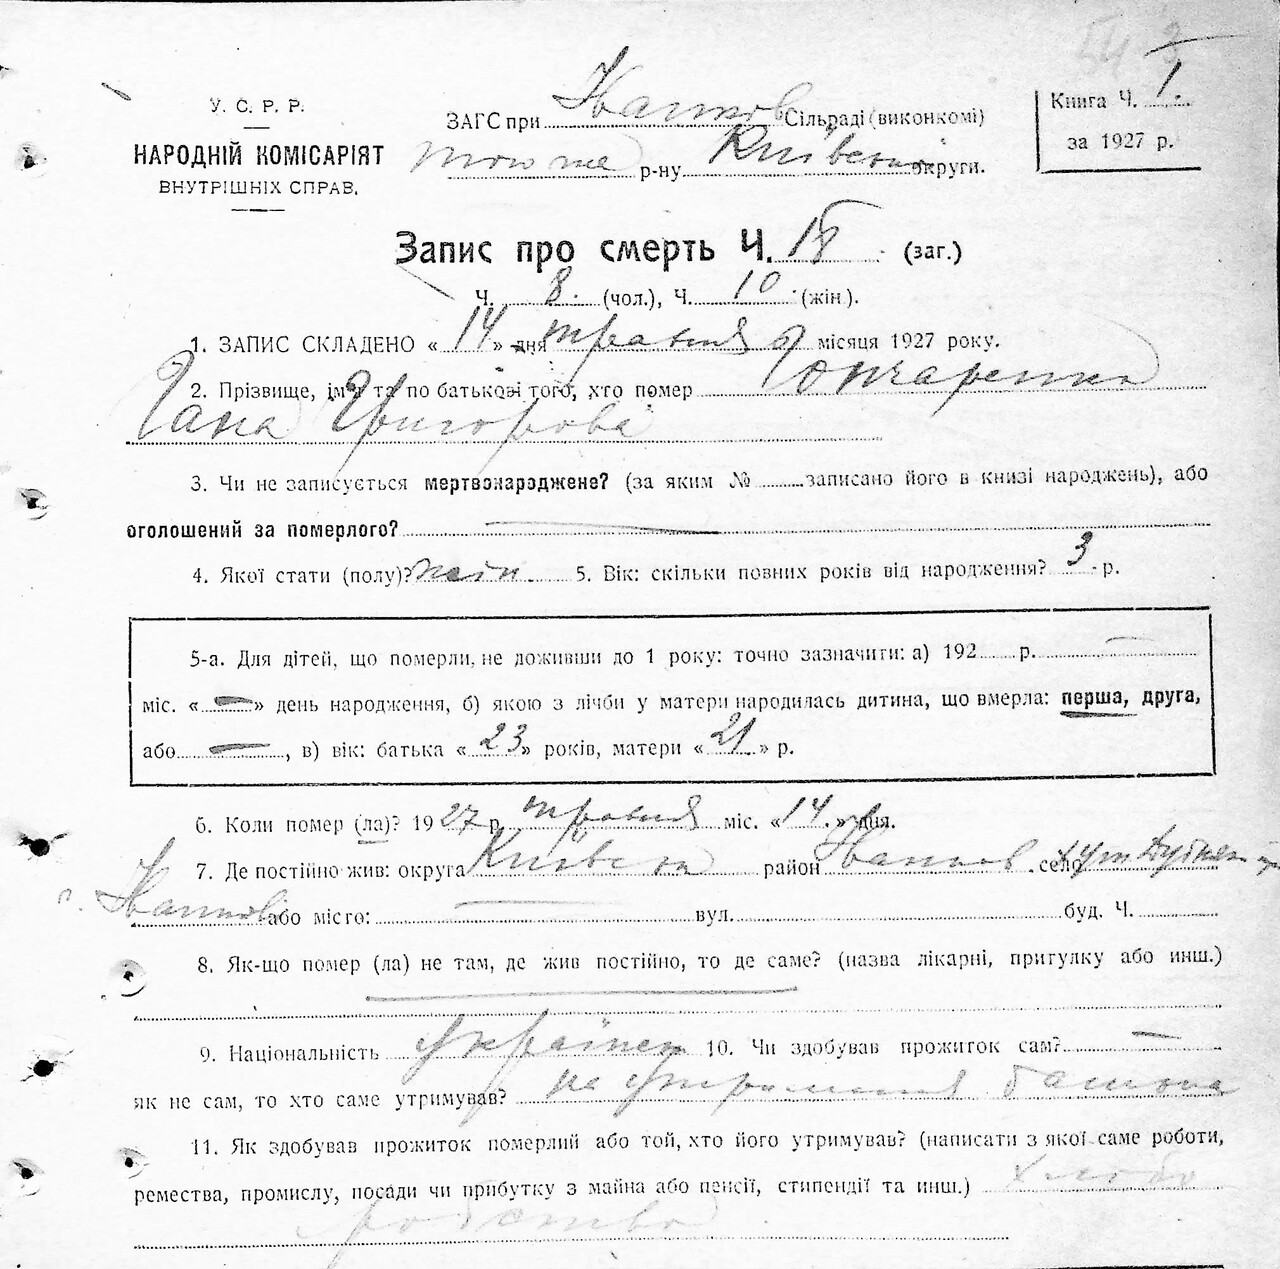 54 3
У. С. Р. Р.
НАРОДНІЙ КОМІСАРІЯТ
ВНУТРІШНІХ СПРАВ.
ЗАГС при Іванков Сільраді (виконкомі)
того же р-ну Київської округи.
Книга Ч. 1.
за 1927 р.
Запис про смерть Ч. 18 (заг.)
Ч. 8. (чол.), Ч. 10 (жін).
1. ЗАПИС СКЛАДЕНО « 14 » дня травня місяця 1927 року.
2. Прізвище, ім'я та по батькові того, хто помер Гончаренко
Гана Григорова
3. Чи не записується мертвонароджене? (за яким № записано його в книзі народжень), або
оголошений за померлого?
4. Якої стати (полу)? жін. 5. Вік: скільки повних років від народження? 3 р.
5-а. Для дітей, що померли, не доживши до 1 року: точно зазначити: а) 192 р.
міс. « — » день народження, б) якою з лічби у матери народилась дитина, що вмерла: перша, друга,
або — , в) вік: батька « 23 » років, матери « 21 » р.
6. Коли помер (ла)? 1927 р. травня міс. « 14. » дня.
7. Де постійно жив: округа Київська район Іванков село хут
або місто: вул. буд. Ч.
8. Як-що помер (ла) не там, де жив постійно, то де саме? (назва лікарні, пригулку або инш.)
9. Національність українка 10. Чи здобував прожиток сам? —
як не сам, то хто саме утримував? на утриманні батька
11. Як здобував прожиток померлий або той, хто його утримував? (написати з якої саме роботи,
ремества, промислу, посади чи прибутку з майна або пенсії, стипендії та инш.) хлібо
робство